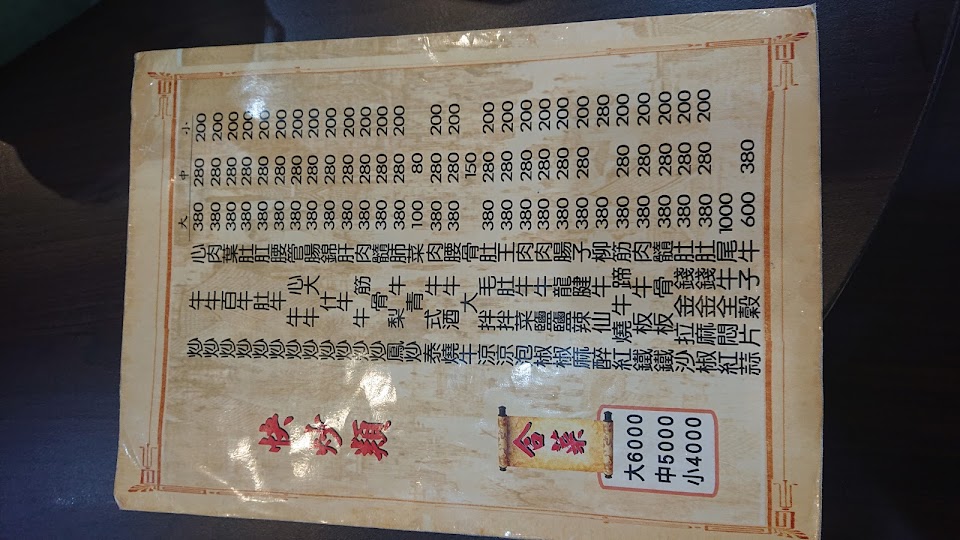 快炒類
大 中 小
炒牛心 380 280 200
炒牛肉 380 280 200
炒百葉 380 280 200
炒牛肚 380 280 200
炒肚肚 380 280 200
炒牛腰 380 280 200
炒牛心管 380 280 200
炒牛大腸 380 280 200
炒什錦 380 280 200
炒牛肝 380 280 200
炒牛筋肉 380 280 200
炒骨髓 380 280 200
鳳梨牛肺 380 280 200
炒青菜 100 80
泰式牛肉 380 280 200
燒酒牛腰 380 280 200
牛大骨 150
涼拌毛肚 380 280 200
涼拌肚干 380 280 200
泡菜牛肉 380 280 200
椒鹽牛肉 380 280 200
椒鹽龍腸 380 280 200
麻辣腱子 380 280 200
醉仙牛柳 380 280
紅燒牛蹄筋 380 280 200
鐵板牛肉 380 280 200
鐵板骨髓 380 280 200
沙拉金錢肚 380 280 200
椒麻金錢肚 380 280 200
紅燜全牛尾 1000
蒜片穀子牛 600 380
合菜
大6000
中5000
小4000